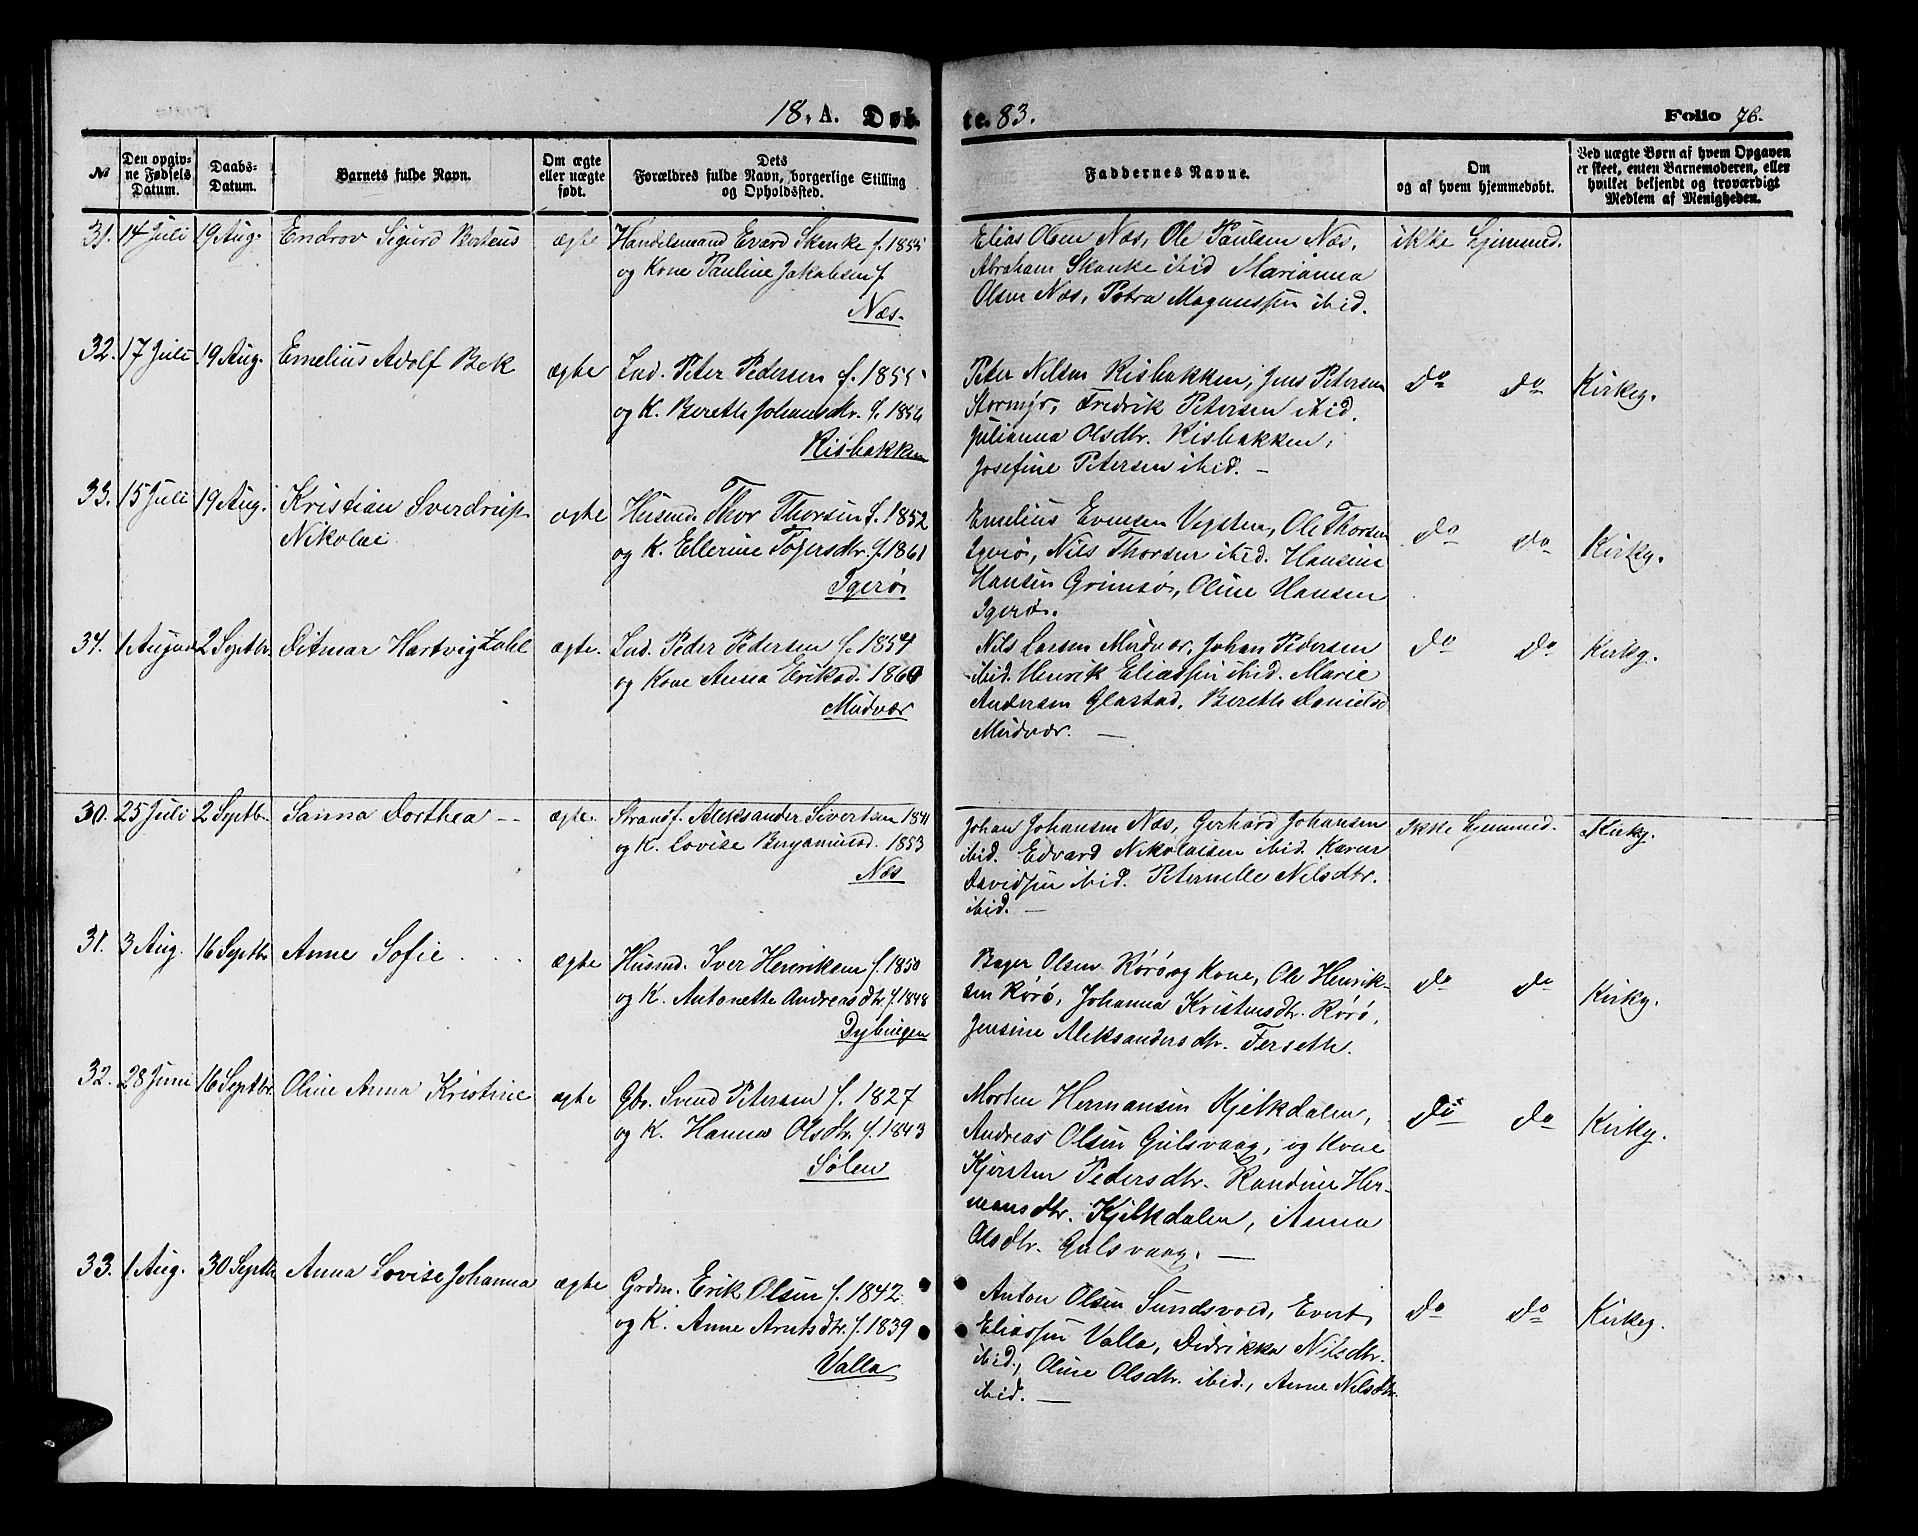 18. A. Døb-
te. 83.
Folio 76.
№
Den opgiv-
ne Fødsels
Datum.
Daabs-
Datum.
Barnets fulde Navn.
Om ægte
eller uægte
født.
Dets
Forældres fulde Navn, borgerlige Stilling
og Opholdssted.
Faddernes Navne.
Om
og af hvem hjemmedøbt.
Ved uægte Børn af hvem Opgaven
er skeet, enten Barnemoderen, eller
hvilket bekjendt og troværdigt
Medlem af Menigheden.
31. 14 Juli 19 Aug. Endrov Sigurd Berteus ægte
Handelsmand Evard Skanke f. 1855
og Kone Pauline Jakobsen f
Næs.
Elias Olsen Næs, Ole Paulsen Næs,
Abraham Skanke ibid Marianna
Olsen Næs, Petra Magnussen ibid.
ikke hjemmed.
32. 17 Juli 19 Aug. Emelius Adolf Bek ægte
Ind. Peter Pedersen f. 1855
og K. Bereth Johansdtr. f. 1856
Risbakken
Peter Nilsen Risbakken, Jens Petersen
Stormyr, Fredrik Petersen ibid.
Julianna Olsdtr. Risbakken,
Josefine Petersen ibid. —
Do Do Kirkeg.
33. 15 Juli 19 Aug. Kristian Sverdrup
Nikolai
ægte
Husmd. Thor Thorsen f. 1852
og K. Ellerine Tøgersdtr. f. 1861
Igerø
Emelius Evensen Vegsten, Ole Thorsen
Igerø, Nils Thorsen ibid. Hansine
Hansen Grimsø, Oline Hansen
Igerø.
Do Do Kirkg.
34. 1 August 2 Septbr. Ditmar Hartvig Zahl ægte.
Ind. Peder Pedersen f. 1854
og Kone Anna Eriksd. 1860
Mudvær
Nils Larsen Mudvær, Johan Pedersen
ibid. Henrik Eliassen ibid. Marie
Andersen Glastad, Bereth Danielsd
Mudvær. —
Do Do Kirkg.
30. 25 Juli 2 Septbr. Sanna Dorthea -- ægte.
Strands. Aleksander Sivertsen 1841
og K. Lovise Benjaminsd. 1853
Næs
Johan Johansen Næs, Gerhard Johansen
ibid. Edvard Nikolaisen ibid. Karen
Davidsen ibid. Peternelle Nilsdtr.
ibid. —
Ikke hjemmed. Kirkg.
31. 3 Aug. 16 Septbr Anne Sofie ægte
Husmd. Iver Henriksen f. 1850
og K. Antonette Andreasdtr f. 1848
Dybingen
Beger Olsen Rørø og Kone, Ole Henrik-
sen Rørø, Johanna Kristensdtr. Rørø,
Jensine Aleksandersdtr. Ferseth.
Do Do Kirkg.
32. 28 Juni 16 Septbr Oline Anna Kristine ægte
Gbr. Svend Petersen f. 1827
og K. Hanna Olsdtr. f. 1843
Sølen
Morten Hermansen Kjelkdalen,
Andreas Olsen Gulsvaag, og Kone
Kjersten Pedersdtr. Randine Her-
mansdtr. Kjelkdalen, Anna
Olsdtr. Gulsvaag. —
Do Do Kirkg.
33. 1 Aug. 30 Septbr Anna Lovise Johanna ægte
Grdm. Erik Olsen f. 1842
og K. Anne Arntsdtr. f. 1839
Valla
Anton Olsen Sundsvold, Evert
Eliassen Valla, Didrikka Nilsdtr.
ibid., Oline Olsdtr. ibid., Anne Nilsdtr.
ibid. —
Do Do Kirkeg.